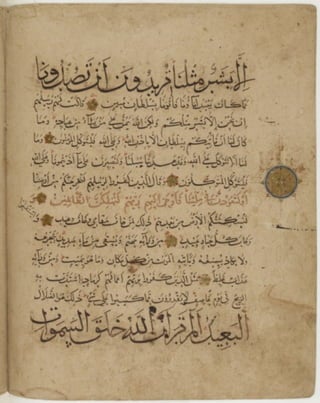 إلا بشر مثلنا تريدون أن تصدونا
عما كان يعبد آباؤنا فأتونا بسلطان مبين قالت لهم رسلهم
إن نحن إلا بشر مثلكم ولكن الله يمن على من يشاء من عباده وما
كان لنا أن نأتيكم بسلطان إلا بإذن الله وعلى الله فليتوكل المؤمنون وما
لنا ألا نتوكل على الله وقد هدانا سبلنا ولنصبرن على ما آذيتمونا وعلى الله
فليتوكل المتوكلون وقال الذين كفروا لرسلهم لنخرجنكم من أرضنا
أو لتعودن في ملتنا فأوحى إليهم ربهم لنهلكن الظالمين
ولنسكننكم الأرض من بعدهم ذلك لمن خاف مقامي وخاف وعيد
وخاب كل جبار عنيد من ورائه جهنم ويسقى من ماء صديد يتجرعه
ولا يكاد يسيغه ويأتيه الموت من كل مكان وما هو بميت ومن ورائه
عذاب غليظ مثل الذين كفروا بربهم أعمالهم كرماد اشتدت به
الريح في يوم عاصف لا يقدرون مما كسبوا على شيء ذلك هو الضلال
البعيد ألم تر أن الله خلق السموات